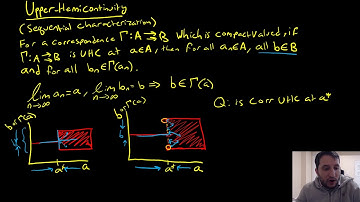 Upper-Hemicontinuity
(Sequential characterization)
For a correspondence Γ:A⇉B which is compact valued, if
Γ:A⇉B is UHC at a∈A, then for all aₙ∈A, all b∈B
and for all bₙ∈Γ(aₙ)
lim aₙ=a, lim bₙ=b ⇒ b∈Γ(a)
n→∞ n→∞
Q: is Corr UHC at a*
b Γ(a)
b Γ(a)
a* a
a* a